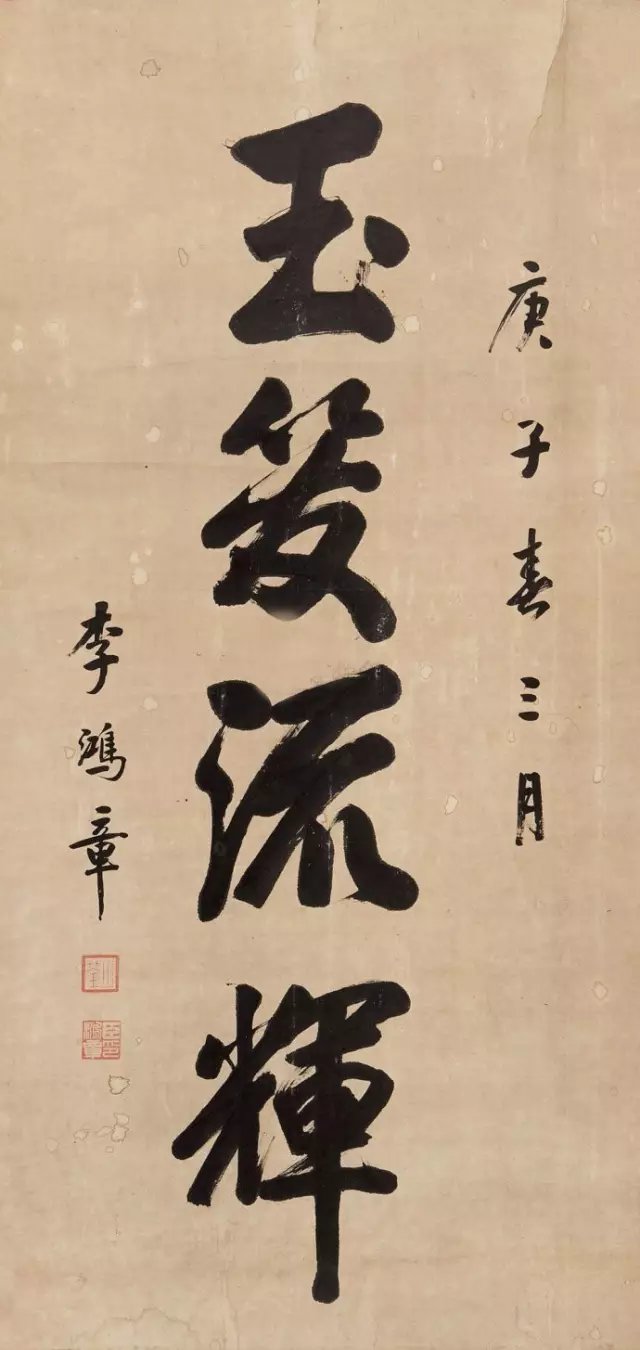 庚子春三月
玉笈流輝
李鴻章
少荃
臣印鴻章